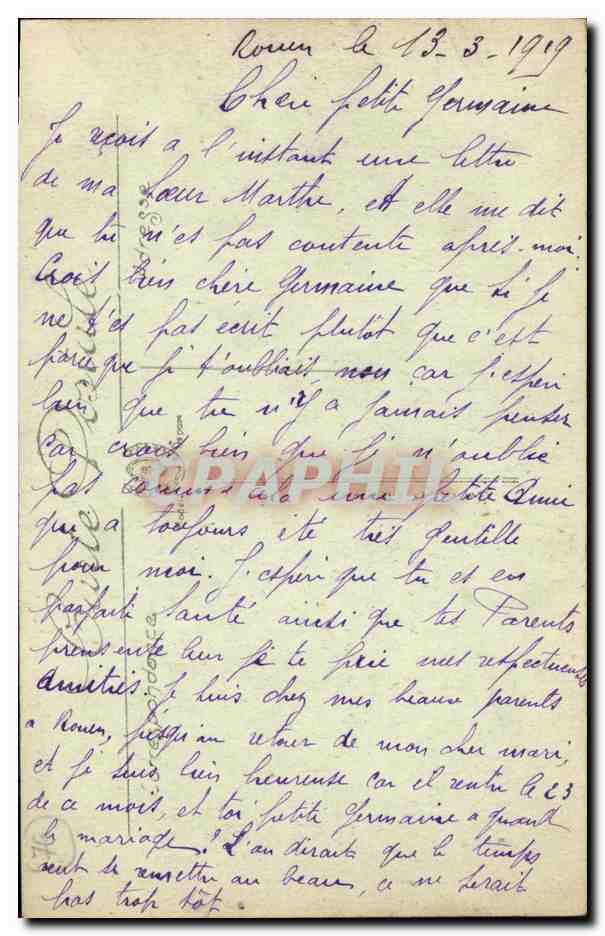 Rouen le 13-3-1919
Chère petite Germaine
Je reçois a l'instant une lettre
de ma Sœur Marthe, et elle me dit
que tu n'es pas contente après-moi.
Crois bien chère Germaine que si je
ne t'es pas ecrit plutôt que c'est
parceque je t'oubliais, non car j'esperé
bien que tu n'y a jamais penser
car crois bien que je n'oublie
pas comme cela une petite Amie
qui a toujours été très gentille
pour moi. J'esperé que tu es en
parfaite Santé ainsi que tes Parents
presente leur je te prie mes respectueuses
Amitiés. Je suis chez mes beaux parents
a Rouen, jusqu'au retour de mon cher mari,
et je suis bien heureuse car il rentre le 23
de ce mois, et toi petite Germaine a quand
le mariage? L'on dirait que le temps
veut se remettre au beau, ce ne serait
pas trop tôt.
Carte Postale
Correspondance
Adresse
76
DELCAMPHIL